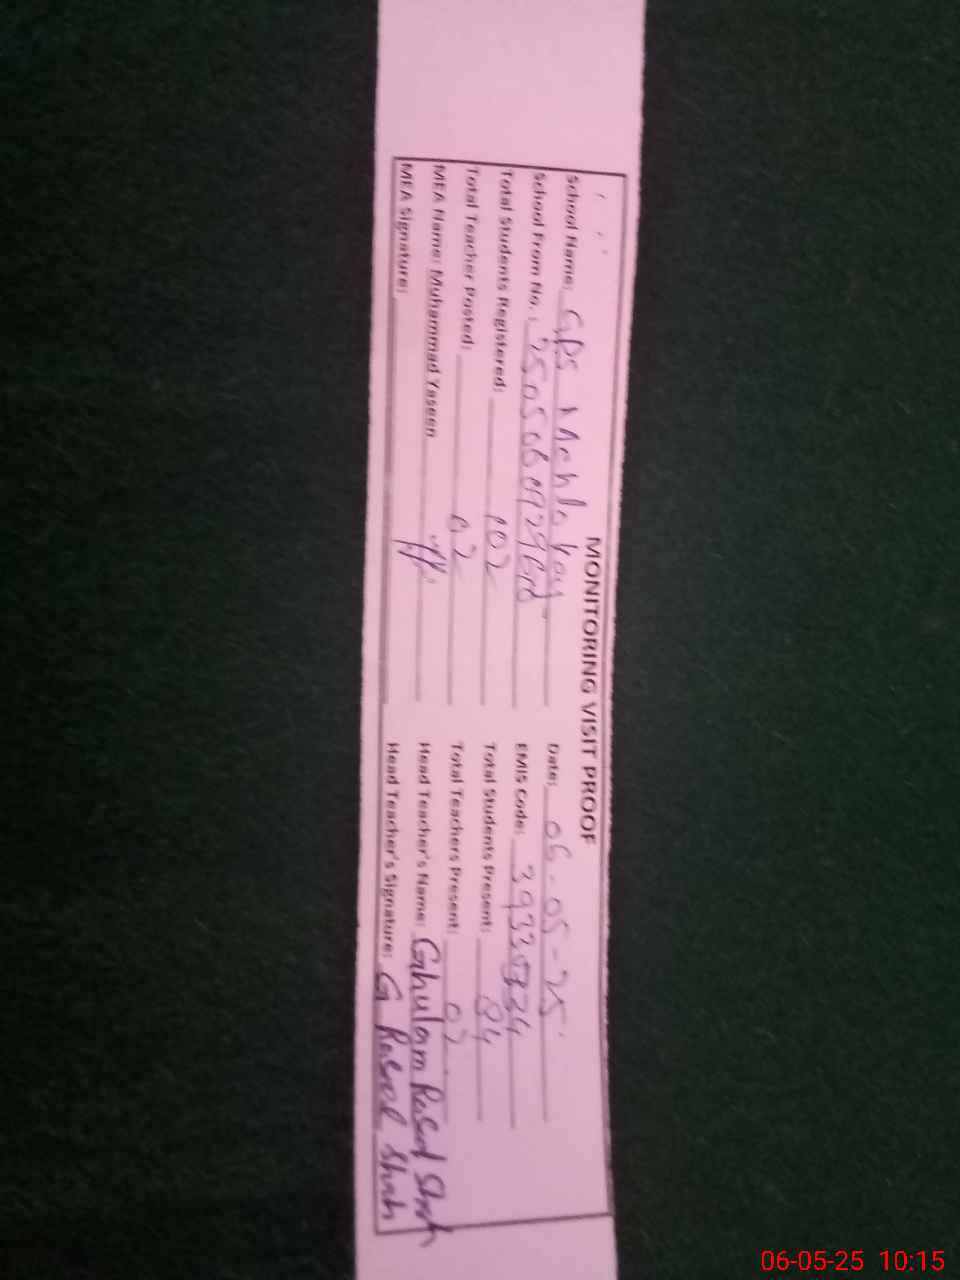 MONITORING VISIT PROOF
School Name: GPS
Date: 06-05-25
School From No.:
EMIS Code:
Total Students Registered: 102
Total Students Present: 84
Total Teacher Posted: 02
Total Teachers Present: 02
MEA Name: Muhammad Yaseen
Head Teacher's Name: Ghulam Rasool Shah
MEA Signature:
Head Teacher's Signature: G Rasool Shah
06-05-25 10:15